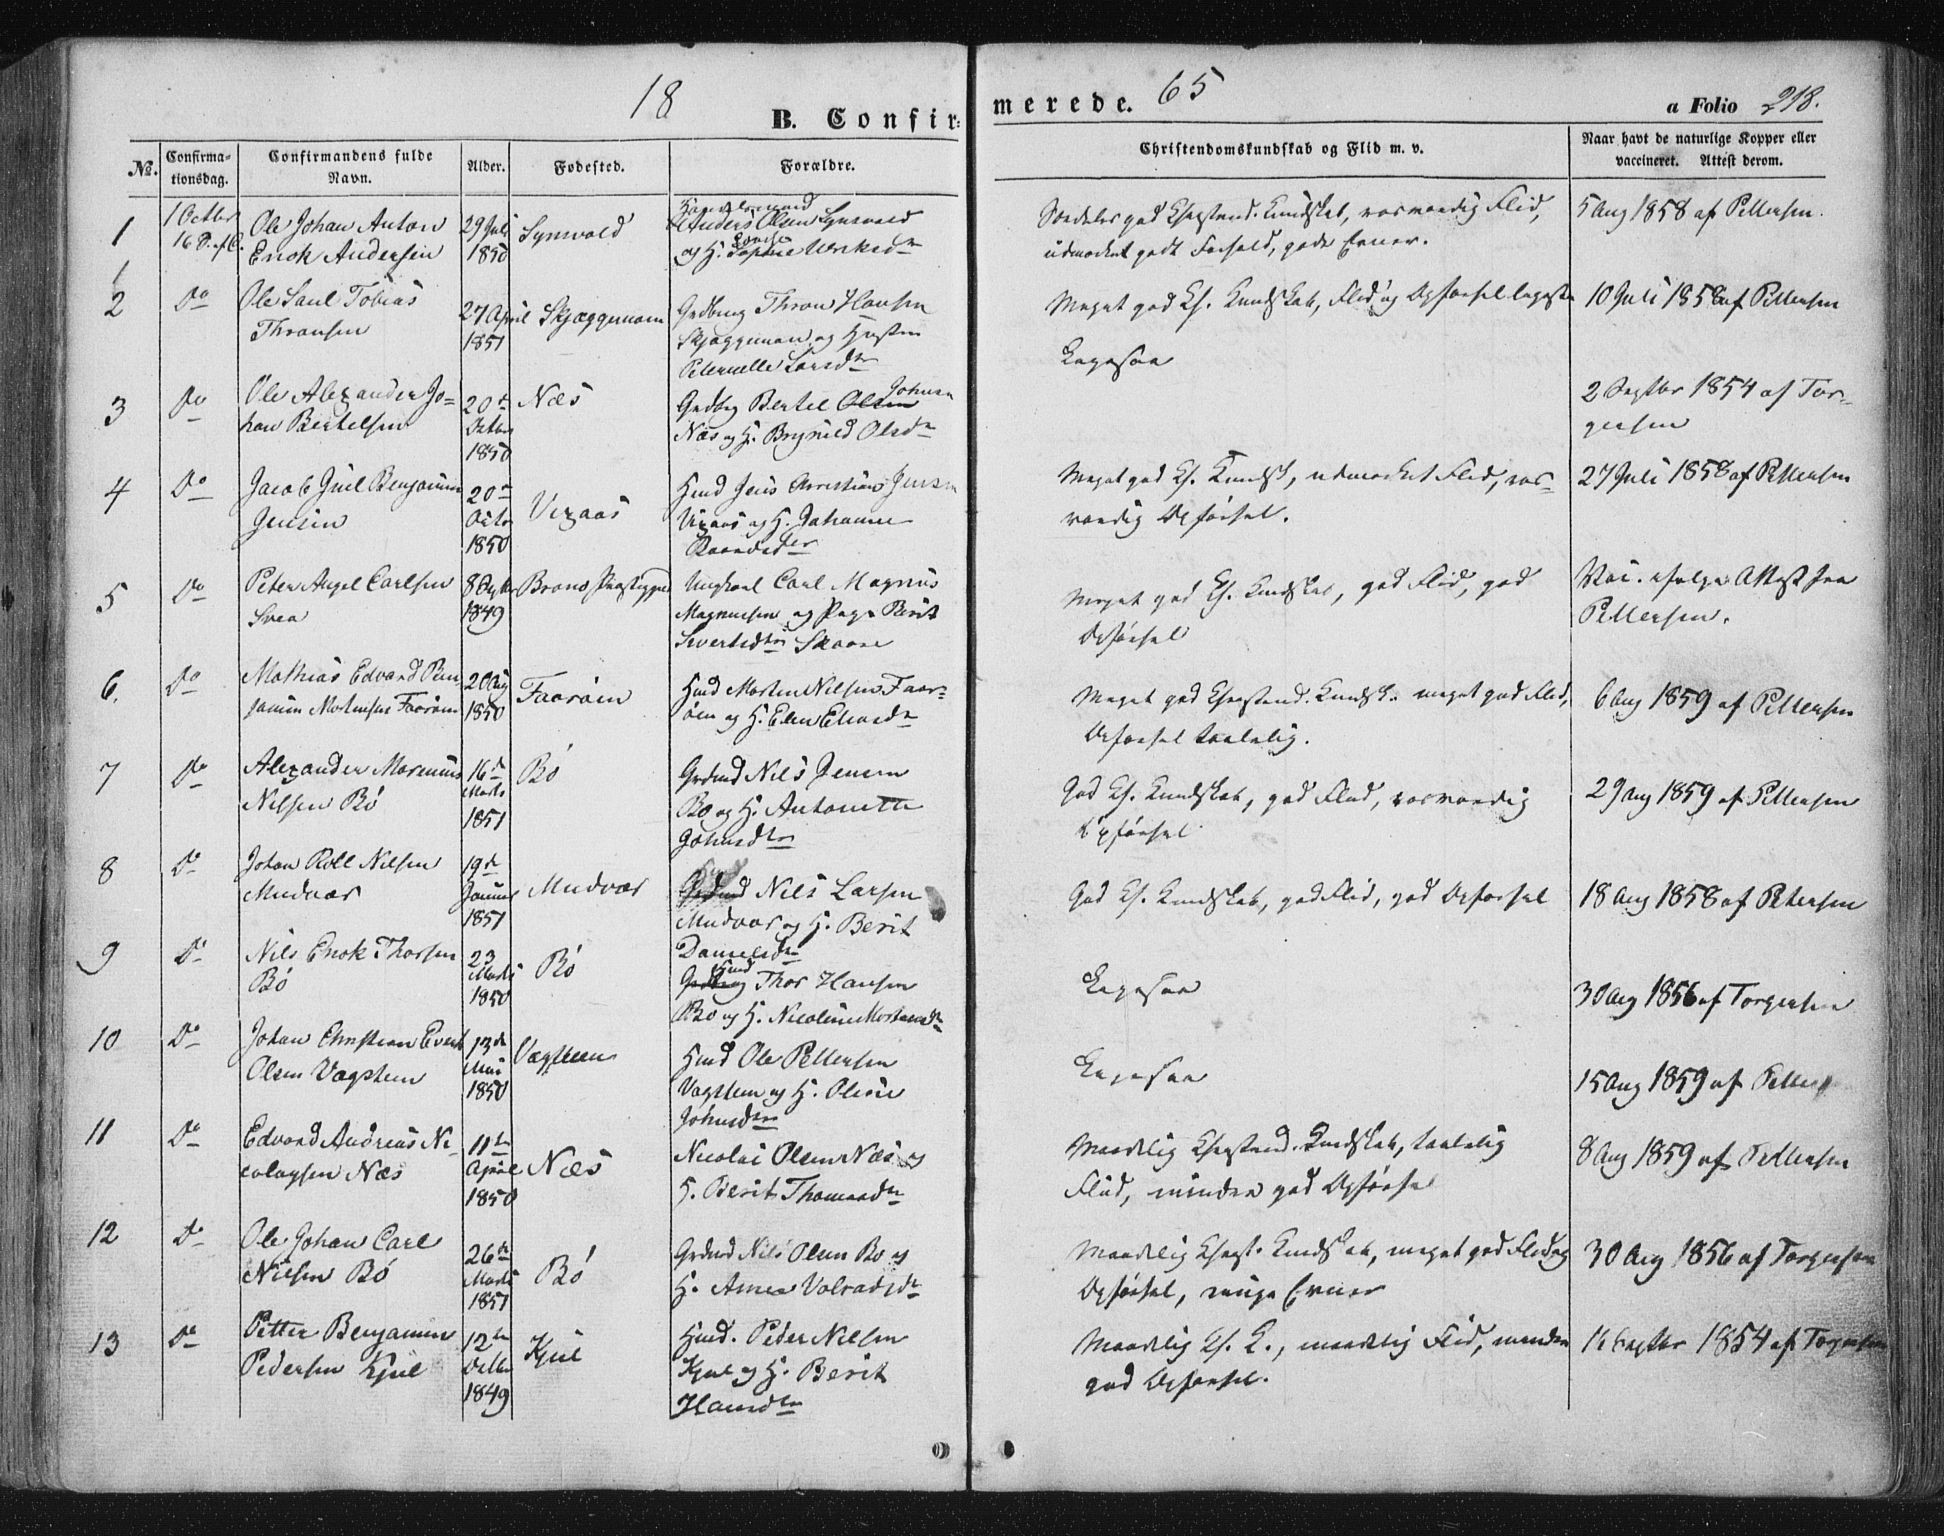 18
65
B. Confirmerede.
a Folio 218.
№.
Confirmationsdag.
Confirmandens fulde Navn.
Alder.
Fødested.
Forældre.
Christendomskundskab og Flid m. v.
Naar havt de naturlige Kopper eller vaccineret. Attest derom.
1
1 Octbr
16 S. e. f.
Ole Johan Anton
Enok Andersen
29 Juli
1850
Synvold
Anders Olsen Synvold
og H. Sophie
Særdeles god Christend. Kundskab, rosværdig Flid,
udmærket godt Forhold, gode Evner.
5 Aug 1858 af Pettersen.
2
Do
Ole Paul Tobias
Thronsen
27 April
1851
Skjæggemoen
Gaardbrug Thron Hansen
Skjæggemoen og Hustru
Peternelle Larsdtr
Meget god Ch. Kundskab, Flid og Opførsel
10 Juli 1858 af Pettersen
3
Do
Ole Alexander Jo-
han Bertelsen
20de
Octbr
1850
Næs
Gaardbrg Bertel Olsen Johnsen
Næs og H. Brynild Olsdtr
Ligesaa
2 Septbr 1854 af Tor-
gersen
4
Do
Jacob Juel Benjamin
Jensen
20de
Octbr
1850
Vixaas
Hmd Jens Christian Jensen
Vixaas og H. Johanna
Meget god Ch. Kundsk, udmærket Flid, ros-
værdig Opførsel.
27 Juli 1858 af Pettersen
5
Do
Peter Angel Carlsen
Svea
8 Septbr
1849
Bronø Præstegjeld
Ungkarl Carl Magnus
Magnussen og Pige Berit
Sivertsdtr Skaare
Meget god Ch. Kundskab, god Flid, god
Opførsel
Vac. ifølge Attest fra
Pettersen.
6.
Do
Mathias Edvard Ben-
jamin Mortensen Faarøen
2 Aug
1850
Faarøen
Hmd Morten Nilsen Faar-
øen og H. Elen
Meget god Christend. Kundsk. meget god Flid,
Opførsel taalelig.
6 Aug 1859 af Pettersen
7
Do
Alexander Marenius
Nilsen Bö
16de
Marts
1851
Bö
Grdmd Nils Jensen
Bö og H. Antonette
Johnsdtr
God Ch. Kundskab, god Flid, rosværdig
Opførsel
29 Aug 1859 af Pettersen
8
Do
Johan Roll Nilsen
Mudvær
19de
Januar
1851
Mudvær
Grdmd Nils Larsen
Mudvær og H. Berit
Danielsdtr
God Ch. Kundskab, god Flid, god Opførsel
18 Aug 1858 af Petersen
9
Do
Nils Enok Thorsen
Bö
23
Marts
1850
Bö
Hmd Thor Hansen
Bö og H. Nicoline Mortensdtr
Ligesaa
30 Aug 1856 af Torgersen
10
Do
Johan Christian Evert
Olsen Vægsteen
13de
Mai
1850
Vægsteen
Hmd Ole Pettersen
Vægsteen og H. Olerie
Johnsdtr
Ligesaa
15 Aug 1859 af Petter
11
Do
Edvard Andreas Ni-
colaysen Næs
11te
April
1850
Næs
Nicolai Olsen Næs og
H. Berit Thomasdtr
Maadelig Christend. Kundskab, taalelig
Flid, mindre god Opførsel
8 Aug 1859 af Pettersen
12
Do
Ole Johan Carl
Nilsen Bö
26de
Marts
1851
Bö
Grdmd Nils Olsen Bö og
H. Anna Volradsdtr
Maadelig Christ. Kundskab, meget god Flid og
Opførsel, ringe Evner
30 Aug 1856 af Torgersen
13
Do
Petter Benjamin
Pedersen Kjul
12te
Octbr
1849
Kjul
Hmd. Peder Nilsen
Kjul og H. Berit
Hansdtr
Maadelig Ch. K., maadelig Flid, mindre
god Opførsel.
16 Septbr 1854 af Torgersen